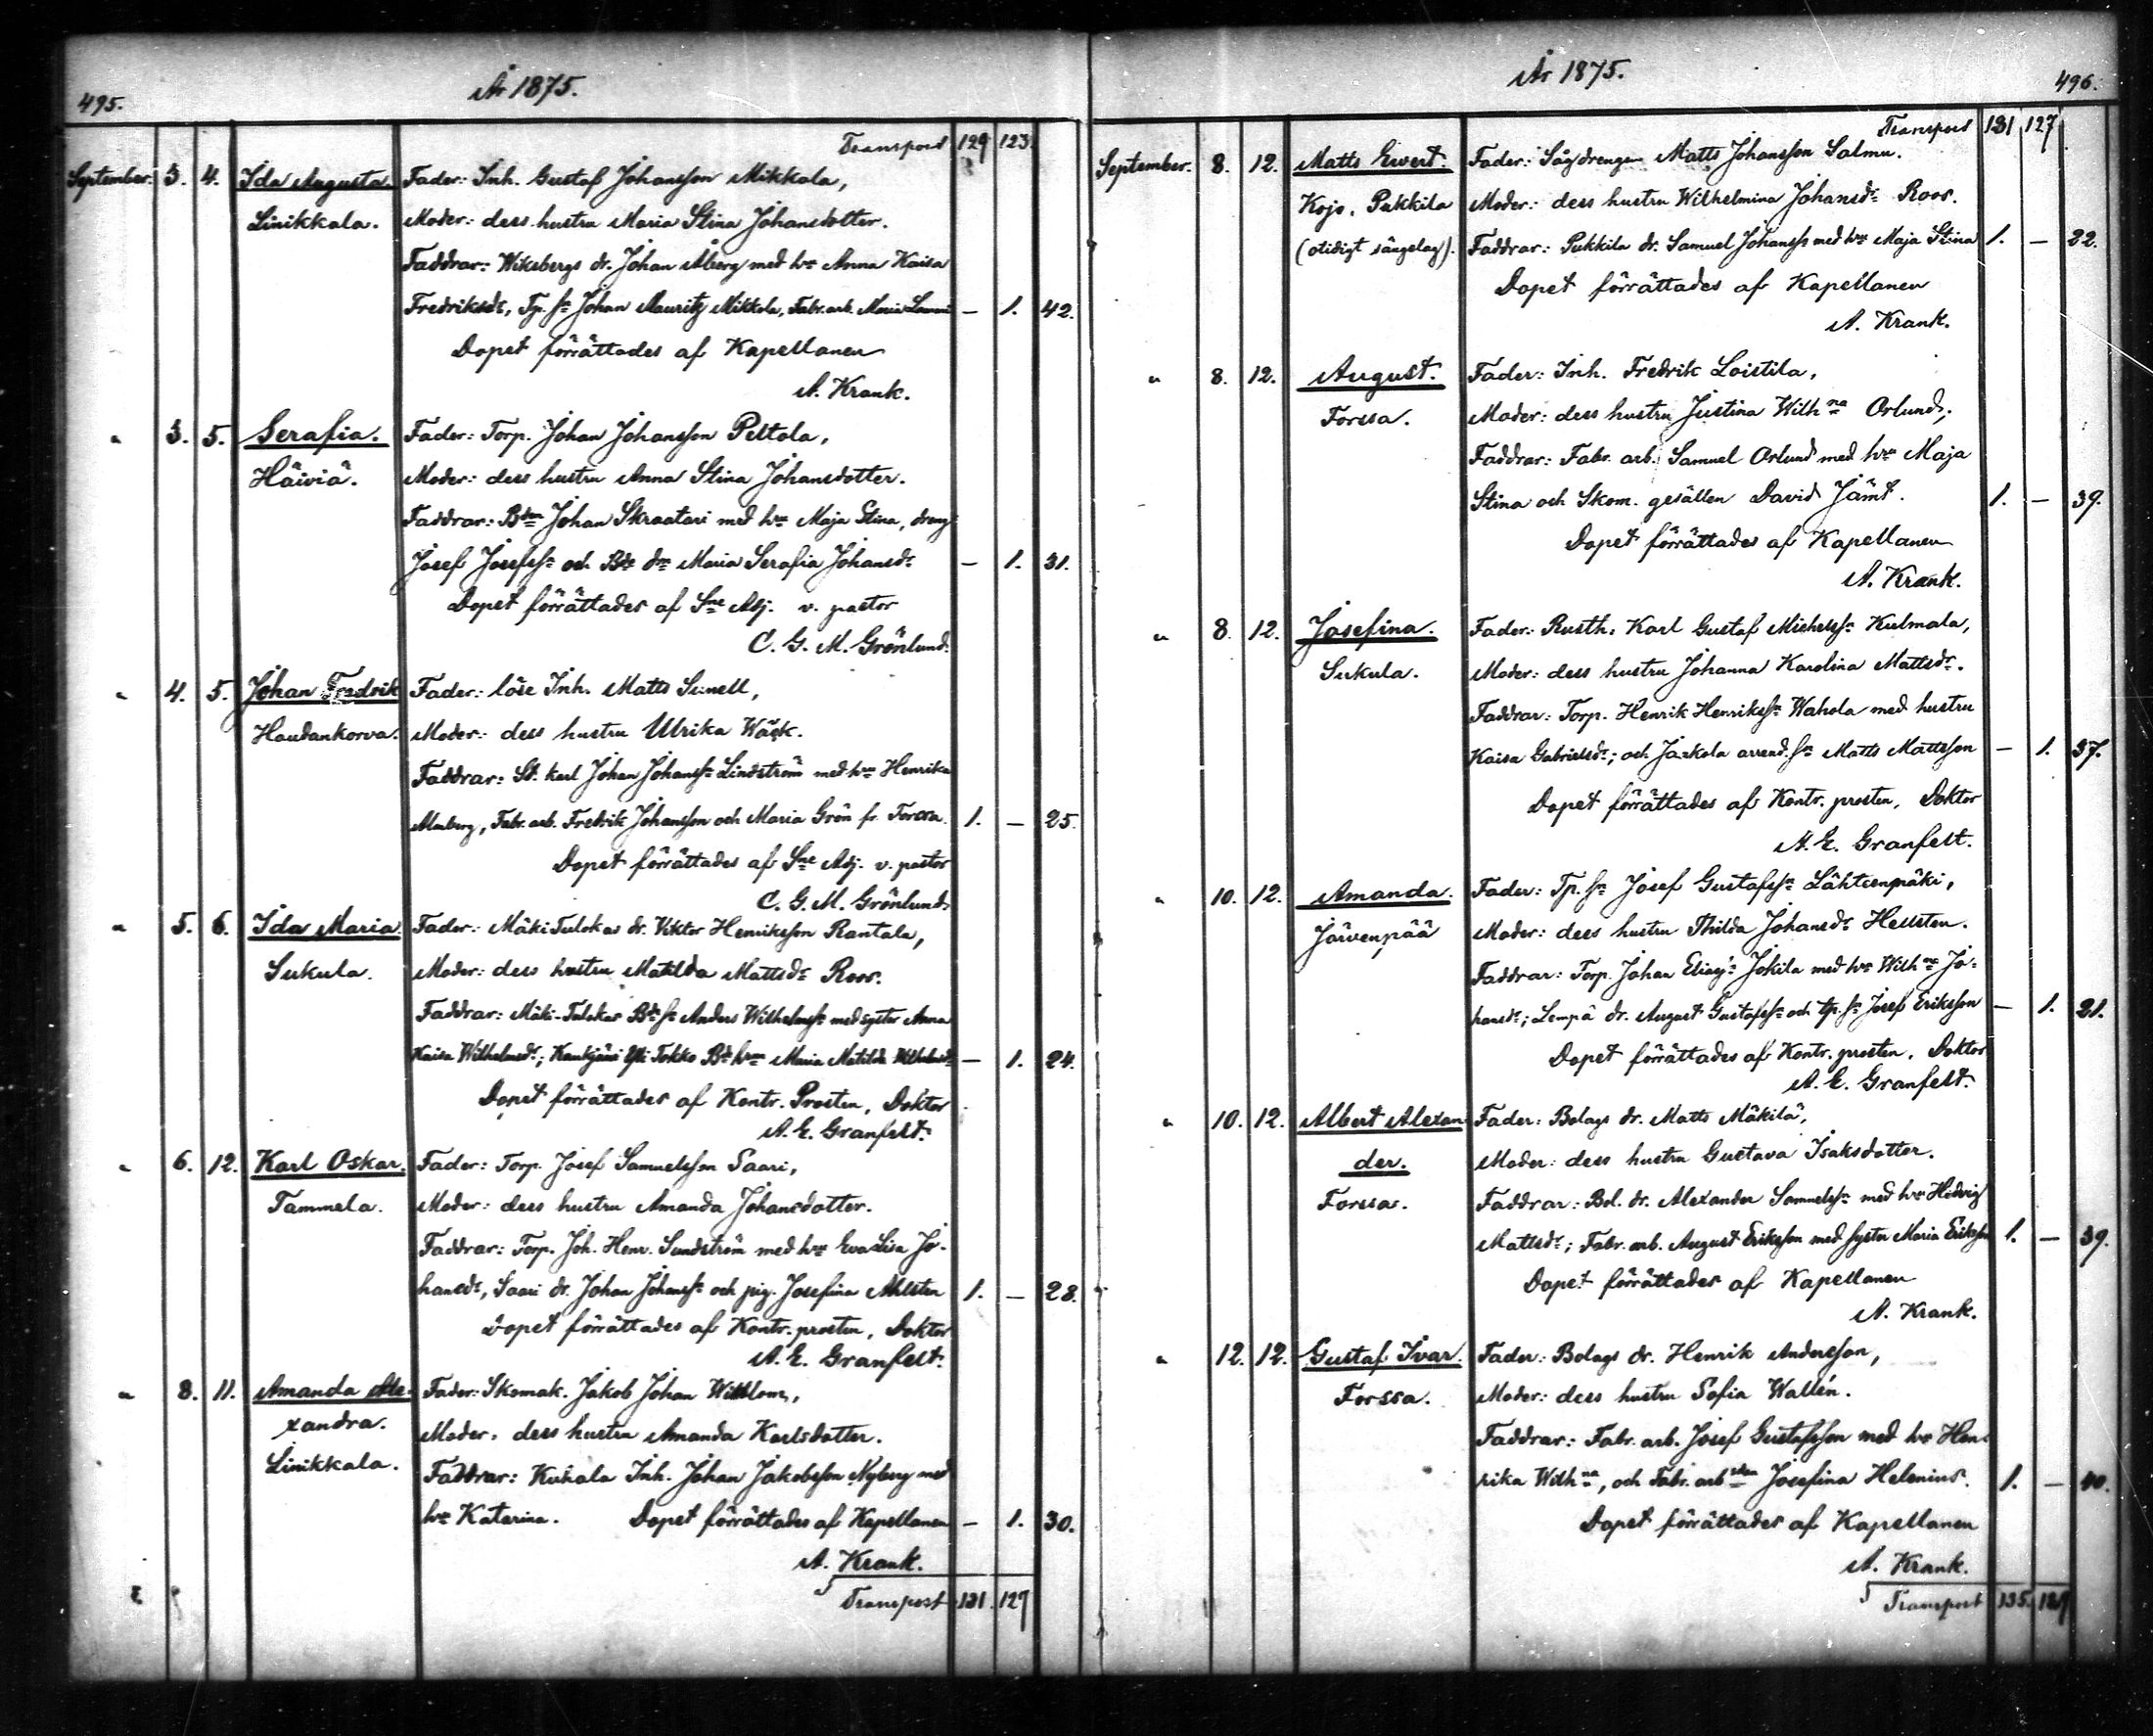 495.
År 1875.
Transport 129 123.
September. 3. 4. Ida Augusta. Fader: Inh. Gustaf Johansson Mikkola,
Linikkala. Moder: dess hustru Maria Stina Johansdotter.
Faddrar: Wiksbergs dr. Johan Åberg med hu Anna Kaisa
Fredriksdr, Tp. sn Johan Mauritz Mikkola, Fabr. arb. Maria – 1. 42.
Dopet förrättades af Kapellanen
A. Krank.
" 3. 5. Serafia. Fader: Torp. Johan Johansson Peltola,
Häiviä. Moder: dess hustru Anna Stina Johansdotter.
Faddrar: Bden Johan Skraatari med hu Maja Stina, dreng
Josef Josefsn och Bde dn Maria Serafia Johansdr – 1. 31.
Dopet förrättades af Sne Adj. v. pastor
C. G. M. Grönlund.
" 4. 5. Johan Fredrik Fader: löse Inh. Matts Sunell,
Haudankorva. Moder: dess hustru Ulrika Wäck.
Faddrar: St. karl Johan Johanssn Lindström med hu Henrika
Almberg, Fabr. arb. Fredrik Johansson och Maria Grön fr. Forssa. 1. – 25.
Dopet förrättades af Sne Adj. v. pastor
C. G. M. Grönlund.
" 5. 6. Ida Maria. Fader: Mäki Tulokas dr. Viktor Henriksson Rantala,
Sukula. Moder: dess hustru Matilda Mattsdr Roos.
Faddrar: Mäki-Tulokas Bde sn Anders Wilhelmssn med syster Anna
Kaisa Wilhelmsdr; Kaukjärvi Tokko Bde hu Maria Matilda Wilhelmsdr – 1. 24.
Dopet förrättades af Kontr. Prosten, Doktor
A. E. Granfelt.
" 6. 12. Karl Oskar. Fader: Torp. Josef Samuelsson Saari,
Tammela. Moder: dess hustru Amanda Johansdotter.
Faddrar: Torp. Joh. Henr. Sundström med hu Eva Lisa Jo-
hansdr, Saari dr. Johan Johanssn och pig. Josefina Ahlsten 1. – 28.
Dopet förrättades af Kontr. prosten, Doktor
A. E. Granfelt.
" 8. 11. Amanda Ale- Fader: Skomak. Jakob Johan Wittblom,
xandra. Moder: dess hustru Amanda Karlsdotter.
Linikkala. Faddrar: Kuhala Inh. Johan Jakobsson Nyberg med
hu Katarina. Dopet förrättades af Kapellanen – 1. 30.
A. Krank.
Transport 131. 127
År 1875.
496.
Transport 131 127
September. 8. 12. Matts Ewert. Fader: Sågdrengen Matts Johansson Salmu.
Kojo, Pukkila Moder: dess hustru Wilhelmina Johansdr Roos.
(otidigt sängelag). Faddrar: Pukkila dr. Samuel Johanss med hu Maja Stina 1. – 22.
Dopet förrättades af Kapellanen
A. Krank.
" 8. 12. August. Fader: Inh. Fredrik Loistila,
Forssa. Moder: dess hustru Justina Wilhna Orlund;
Faddrar: Fabr. arb. Samuel Orlund med hu Maja
Stina och Skom. gesällen David Jämt. 1. – 39.
Dopet förrättades af Kapellanen
A. Krank.
" 8. 12. Josefina. Fader: Rusth. Karl Gustaf Michelssn Kulmala,
Sukula. Moder: dess hustru Johanna Karolina Mattsdr.
Faddrar: Torp. Henrik Henrikssn Wahola med hustru
Kaisa Gabrielsdr; och Jaakola arrend. sn Matts Mattsson – 1. 37.
Dopet förrättades af Kontr. prosten, Doktor
A. E. Granfelt.
" 10. 12. Amanda. Fader: Tp. sn Josef Gustafssn Lähteenmäki,
Järvenpää Moder: dess hustru Thilda Johansdr Hellsten.
Faddrar: Torp. Johan Eliassn Jokila med hu Wilhna Jo-
hansdr; Lempä dr. August Gustafssn och tp. sn Josef Eriksson – 1. 21.
Dopet förrättades af Kontr. prosten, Doktor
A. E. Granfelt.
" 10. 12. Albert Alexan- Fader: Bolags dr. Matts Mäkilä,
der. Moder: dess hustru Gustava Isaksdotter.
Forssa. Faddrar: Bol. dr. Alexander Samuelssn med hu Hedvig
Mattsdr; Fabr. arb. August Eriksson med syster Maria Eriksdr 1. – 39.
Dopet förrättades af Kapellanen
A. Krank.
" 12. 12. Gustaf Ivar. Fader: Bolags dr. Henrik Andersson,
Forssa. Moder: dess hustru Sofia Wallén.
Faddrar: Fabr. arb. Josef Gustafsson med hu Hen-
rika Wilhna, och Fabr. arbskan Josefina Helenius. 1. – 40.
Dopet förrättades af Kapellanen
A. Krank.
Transport 135. 129